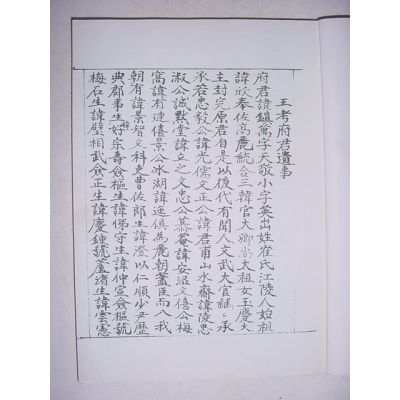 王考府君遺事
府君諱鎭萬字天敬小字英出姓崔氏江陵人始祖
諱欣奉佐高麗統合三韓官大卿尚太祖女玉慶大
主封完原君自是以後代有聞人文武大官繼〻承
承若忠毅公諱光儒文正公諱君甫山水齋諱陵忠
淑公誠默堂諱立之文忠公慕菴諱安沼文僖公梅
窩諱有漣僖景公水湖諱通俱爲麗朝藎臣而入我
朝有諱景智文科吏曹佐郎生諱澄以仁順少尹歷
典郡事生諱好宗壽僉樞生諱悌守生諱仲宣僉樞號
梅石生諱壁相武僉正生諱慶鍾號蘆渚生諱雲憲